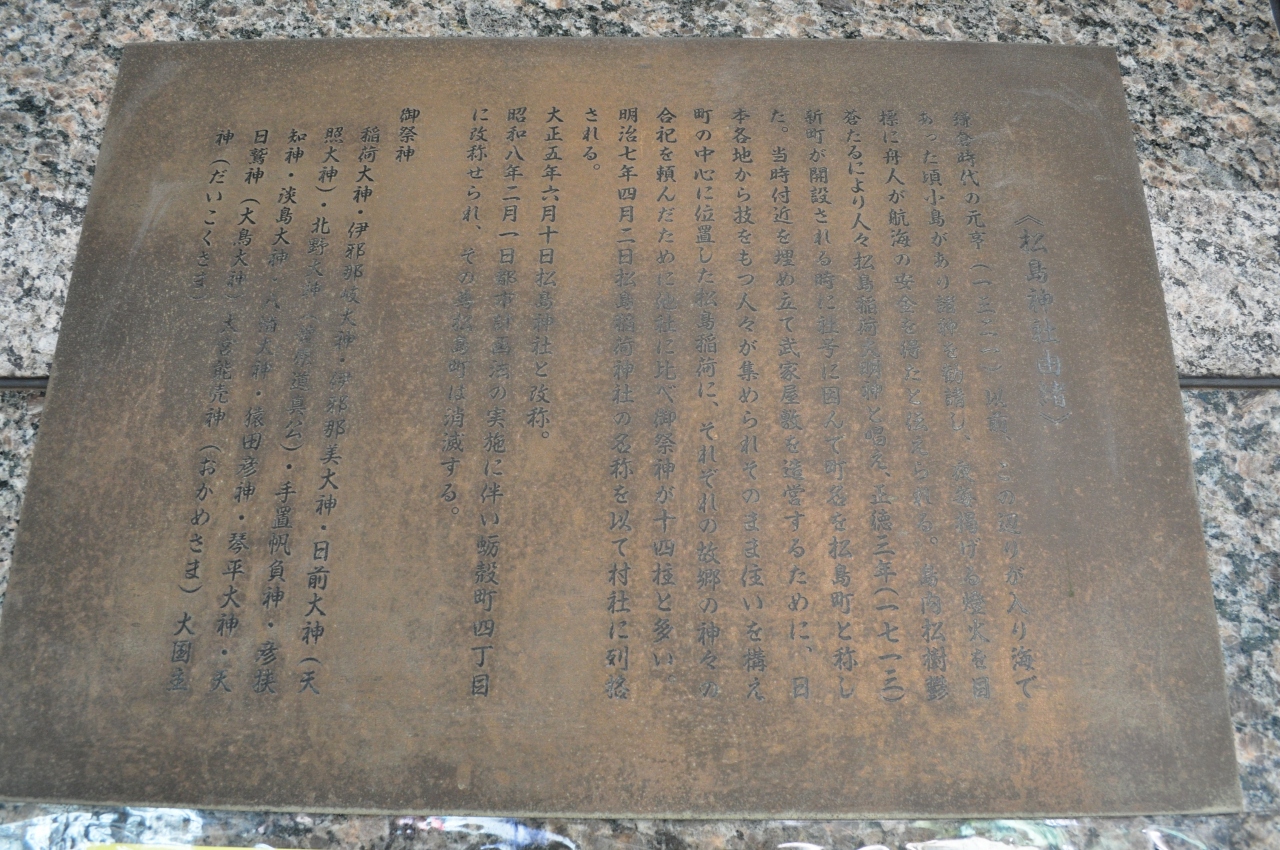 《松島神社由緒》
鎌倉時代の元亨（一三二一）以前、この辺りが入り海で
あった頃小島があり諸神を勧請し、夜毎掲げる燈火を目
標に舟人が航海の安全を得たと伝えられる。島内松樹鬱
蒼たるにより人々松島稲荷大明神と唱え、正徳三年（一七一三）
新町が開設される時に社号に因んで町名を松島町と称し
た。当時付近を埋め立て武家屋敷を造営するために、日
本各地から技をもつ人々が集められそのまま住いを構え
町の中心に位置した松島稲荷に、それぞれの故郷の神々の
合祀を頼んだために他社に比べ御祭神が十四柱と多い。
明治七年四月二日松島稲荷神社の名称を以て村社に列格
される。
大正五年六月十日松島神社と改称。
昭和八年二月一日都市計画法の実施に伴い蛎殻町四丁目
に改称せられ、その為松島町は消滅する。
御祭神
稲荷大神・伊邪那岐大神・伊邪那美大神・日前大神（天
照大神）・北野大神（菅原道真公）・手置帆負神・彦狭
知神・淡島大神・八幡大神・猿田彦神・琴平大神・天
日鷲神（大鳥大神）大宮能売神（おかめさま）大国主
神（だいこくさま）